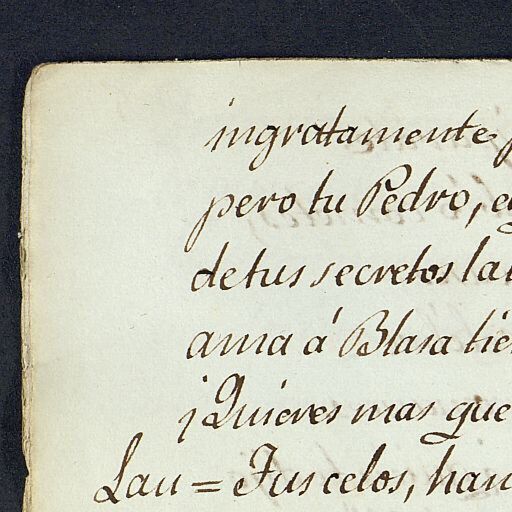 ingratamente
pero tu Pedro,
de tus secretos la
ama á Blasa tie
¡Quieres mas que
Lau = Tus celos, han